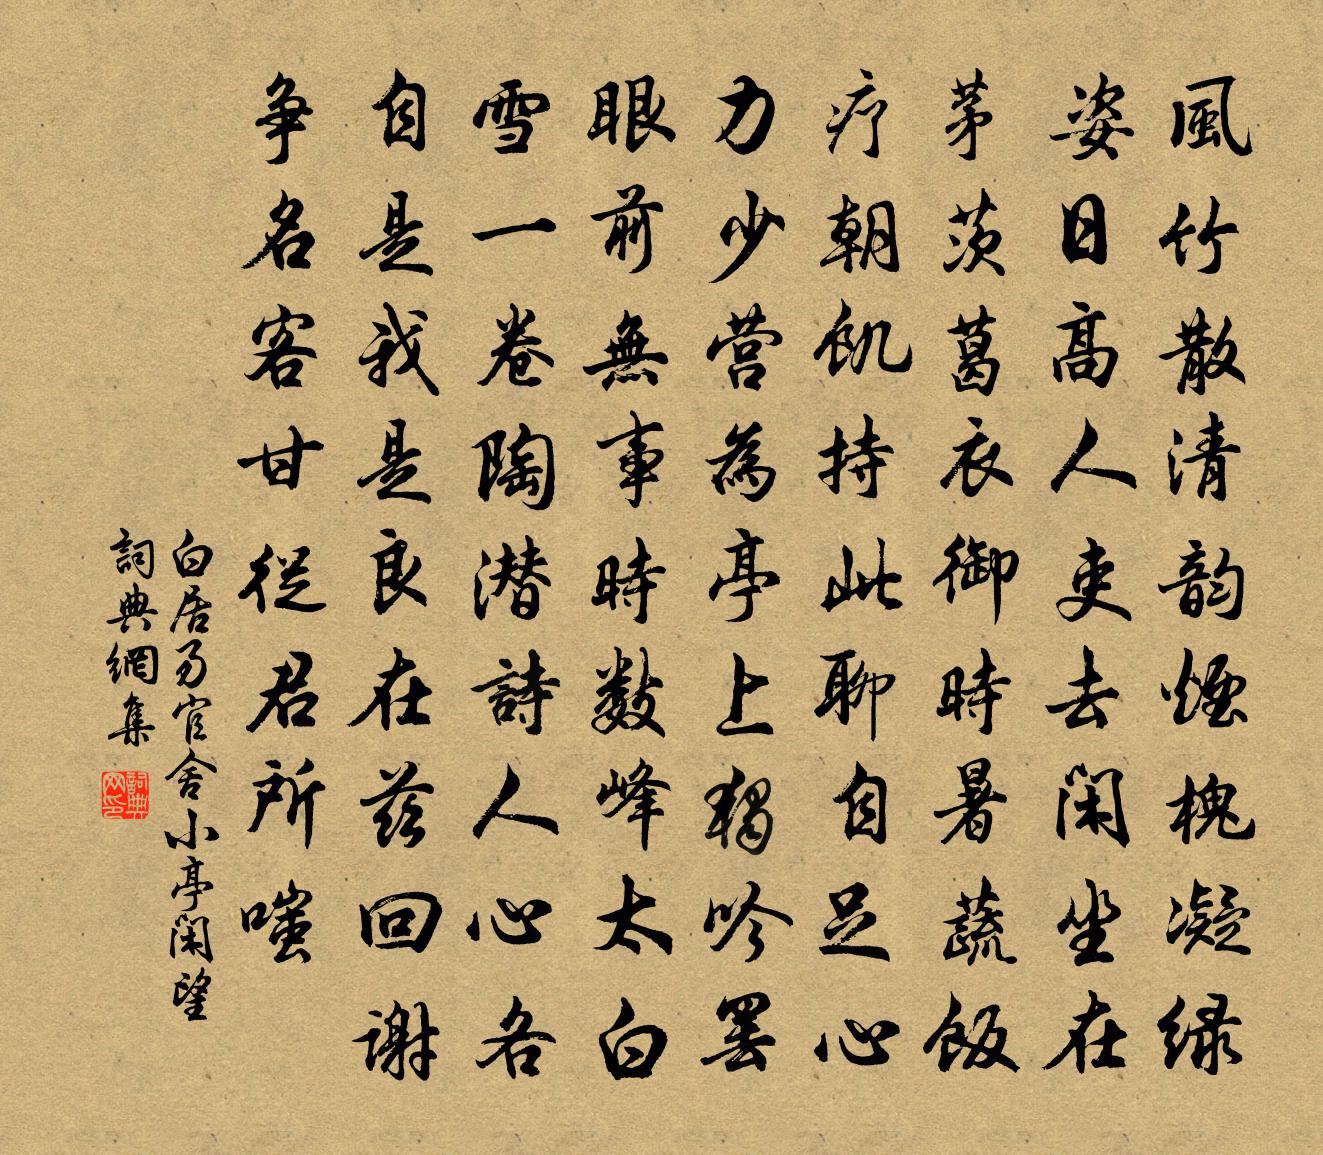 風竹散清韵煙槐凝绿
姿日高人吏去閑坐在
茅茨葛衣御時暑蔬飯
疗朝飢持此聊自足心
力少营為亭上獨吟罢
眼前無事時数峰太白
雪一卷陶潜詩人心各
自是我是良在兹回谢
争名客甘從君所嗤
白居易官舍小亭閑望
詞典網集
詞典网印